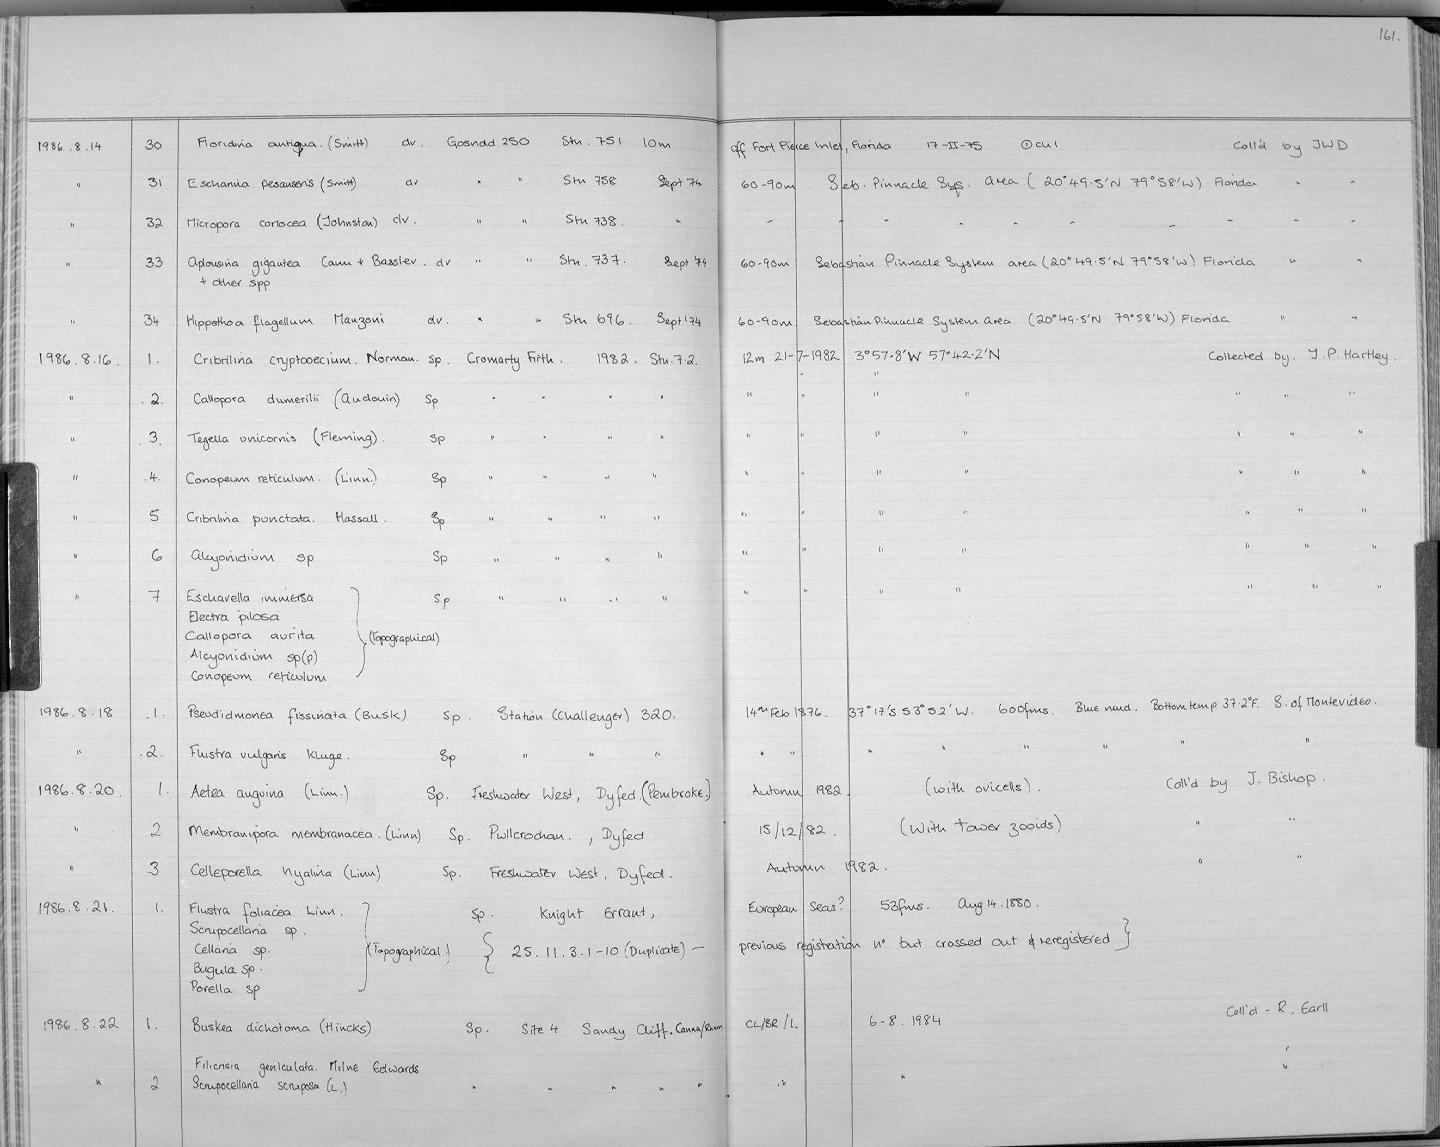 161.
1986.8.14 30 Floridina antiqua. (Smitt) dv. Gosnold 250 Stn. 751 10m off Fort Pierce Inlet, Florida 17-II-75 Coll'd by JWD
" 31 Escharina pesanseris (Smitt) dv " " Stn 758 Sept 74 60-90m Seb. Pinnacle Sys. area (20°49.5'N 79°58'W) Florida " "
" 32 Micropora coriacea (Johnston) dv. " " Stn 738. " " " " " " " " " " "
" 33 Aplousina gigantea Canu + Bassler. dv " " Stn. 737. Sept 74 60-90m Sebastian Pinnacle System area (20°49.5'N 79°58'W) Florida " "
+ other spp
" 34 Hippothoa flagellum Manzoni dv. " " Stn 696. Sept '74 60-90m Sebastian Pinnacle System Area (20°49.5'N 79°58'W) Florida " "
1986.8.16. 1. Cribrilina cryptooecium. Norman. Sp. Cromarty Firth. 1982. Stn. 72. 12m 21-7-1982 3°57.8'W 57°42.2'N Collected by. J.P. Hartley.
" .2. Callopora dumerilii (Audouin) Sp " " " " " " " " " " "
" .3. Tegella unicornis (Fleming). Sp " " " " " " " " " " "
" .4. Conopeum reticulum. (Linn.) Sp " " " " " " " " " " "
" 5 Cribrilina punctata. Hassall. Sp " " " " " " " " " " "
" 6 Alcyonidium sp Sp " " " " " " " " " " "
" 7 Escharella immersa Sp " " " " " " " " " " "
Electra pilosa
Callopora aurita (Topographical)
Alcyonidium sp(p)
Conopeum reticulum
1986.8.18 .1. Pseudidmonea fissurata (Busk) Sp. Station (Challenger) 320. 14th Feb 1876. 37°17'S 53°52'W. 600fms. Blue mud. Bottom temp 37.2°F. S. of Montevideo.
" .2. Flustra vulgaris Kluge. Sp " " " " " " " " " " "
1986.8.20. 1. Aetea anguina (Linn.) Sp. Freshwater West, Dyfed. (Pembroke.) Autumn 1982. (with ovicells). Coll'd by J. Bishop.
" 2 Membranipora membranacea. (Linn) Sp. Pwllcrochan. , Dyfed 15/12/82. (With tower zooids) " "
" 3 Celleporella hyalina (Linn) Sp. Freshwater West, Dyfed. Autumn 1982. " "
1986.8.21. 1. Flustra foliacea Linn. Sp. Knight Errant, European Seas? 53fms. Aug 14. 1880.
Scrupocellaria sp.
Cellaria sp. (Topographical.) { 25.11.3.1-10 (Duplicate) — previous registration no but crossed out & reregistered }
Bugula sp.
Porella sp
1986.8.22 1. Buskea dichotoma (Hincks) Sp. Site 4 Sandy Cliff. Canna/Rum CL/SR/1. 6-8. 1984 Coll'd - R. Earll
Filicrisia geniculata. Milne Edwards
" 2 Scrupocellaria scruposa (L.) " " " " " " " "